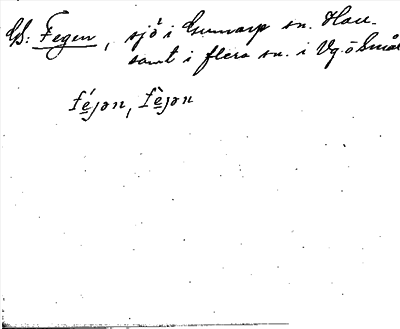 GS: Fegen, sjö i Gunnarp sn. Hall.
samt i flera sn. i Vg. o Smål
féjən, fèjən